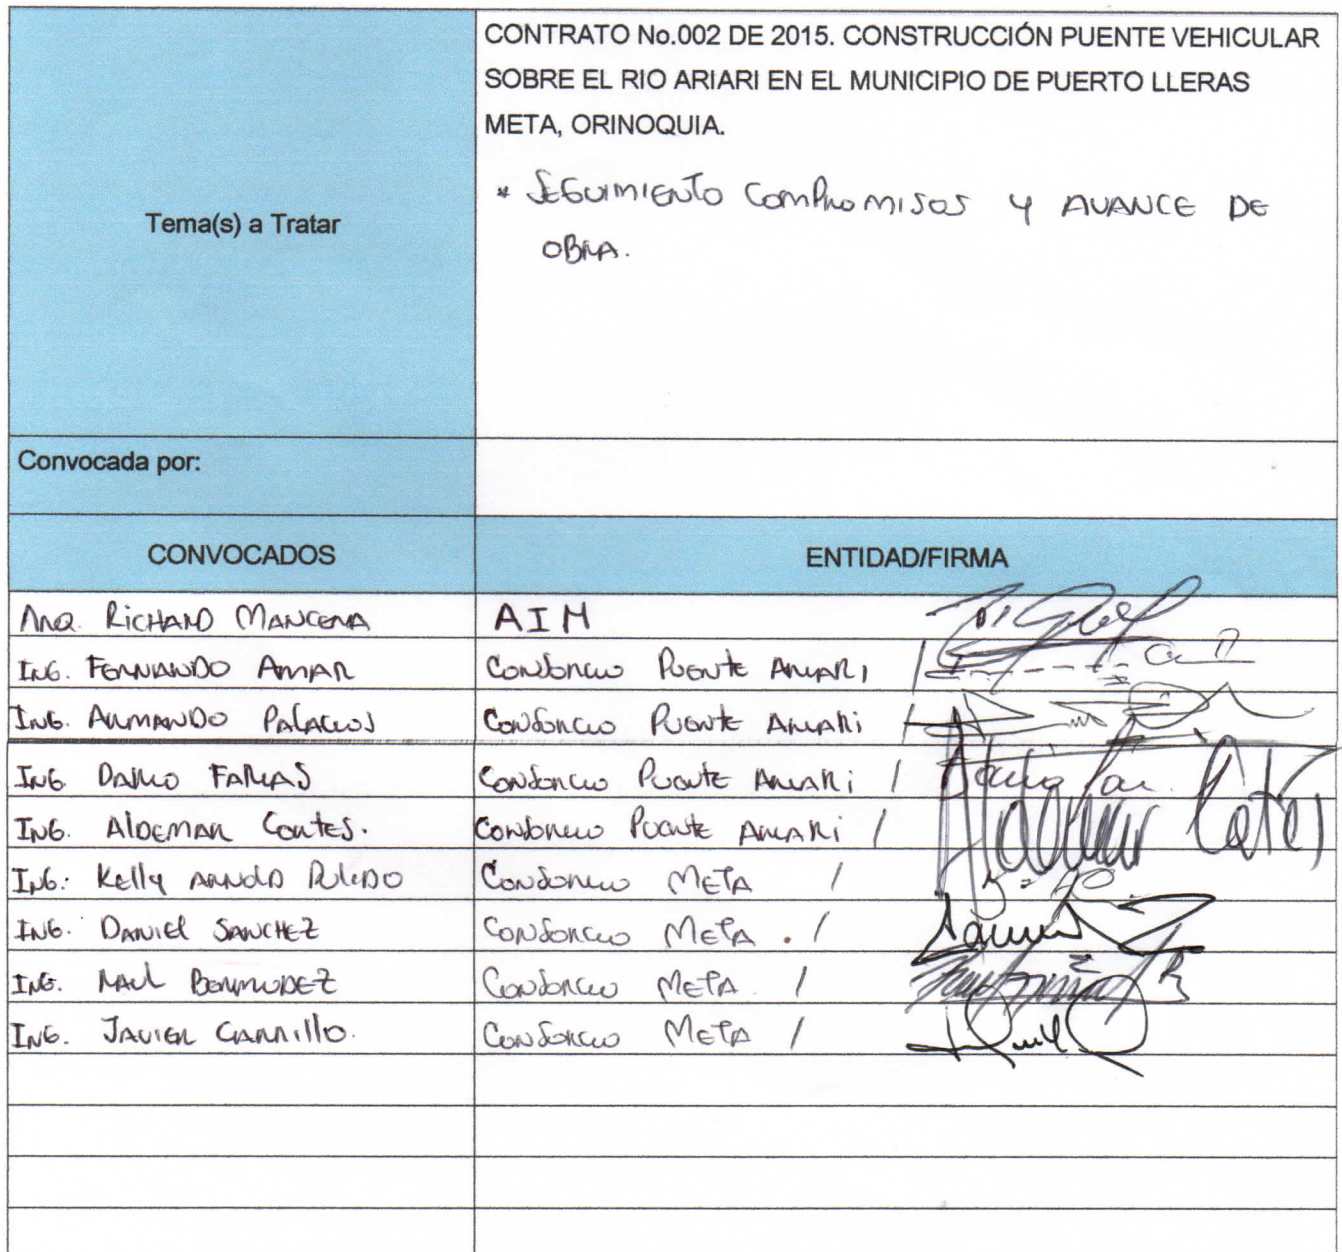 CONTRATO No.002 DE 2015. CONSTRUCCIÓN PUENTE VEHICULAR
SOBRE EL RIO ARIARI EN EL MUNICIPIO DE PUERTO LLERAS
META, ORINOQUIA.
Tema(s) a Tratar
* SEGUIMIENTO COMPROMISOS Y AVANCE DE
OBRA.
Convocada por:
CONVOCADOS ENTIDAD/FIRMA
ARQ. RICHARD MANCERA AIM
ING. FERNANDO AMAR CONSORCIO PUENTE ARIARI /
ING. ARMANDO PALACIOS CONSORCIO PUENTE ARIARI /
ING. DARIO FARIAS CONSORCIO PUENTE ARIARI / Dario Farias
ING. ALDEMAR CORTES. CONSORCIO PUENTE ARIARI / Aldemar Cortes
ING. KELLY ARNOLD PULIDO CONSORCIO META /
ING. DANIEL SANCHEZ CONSORCIO META . /
ING. RAUL BERMUDEZ CONSORCIO META /
ING. JAVIER CARRILLO. CONSORCIO META /